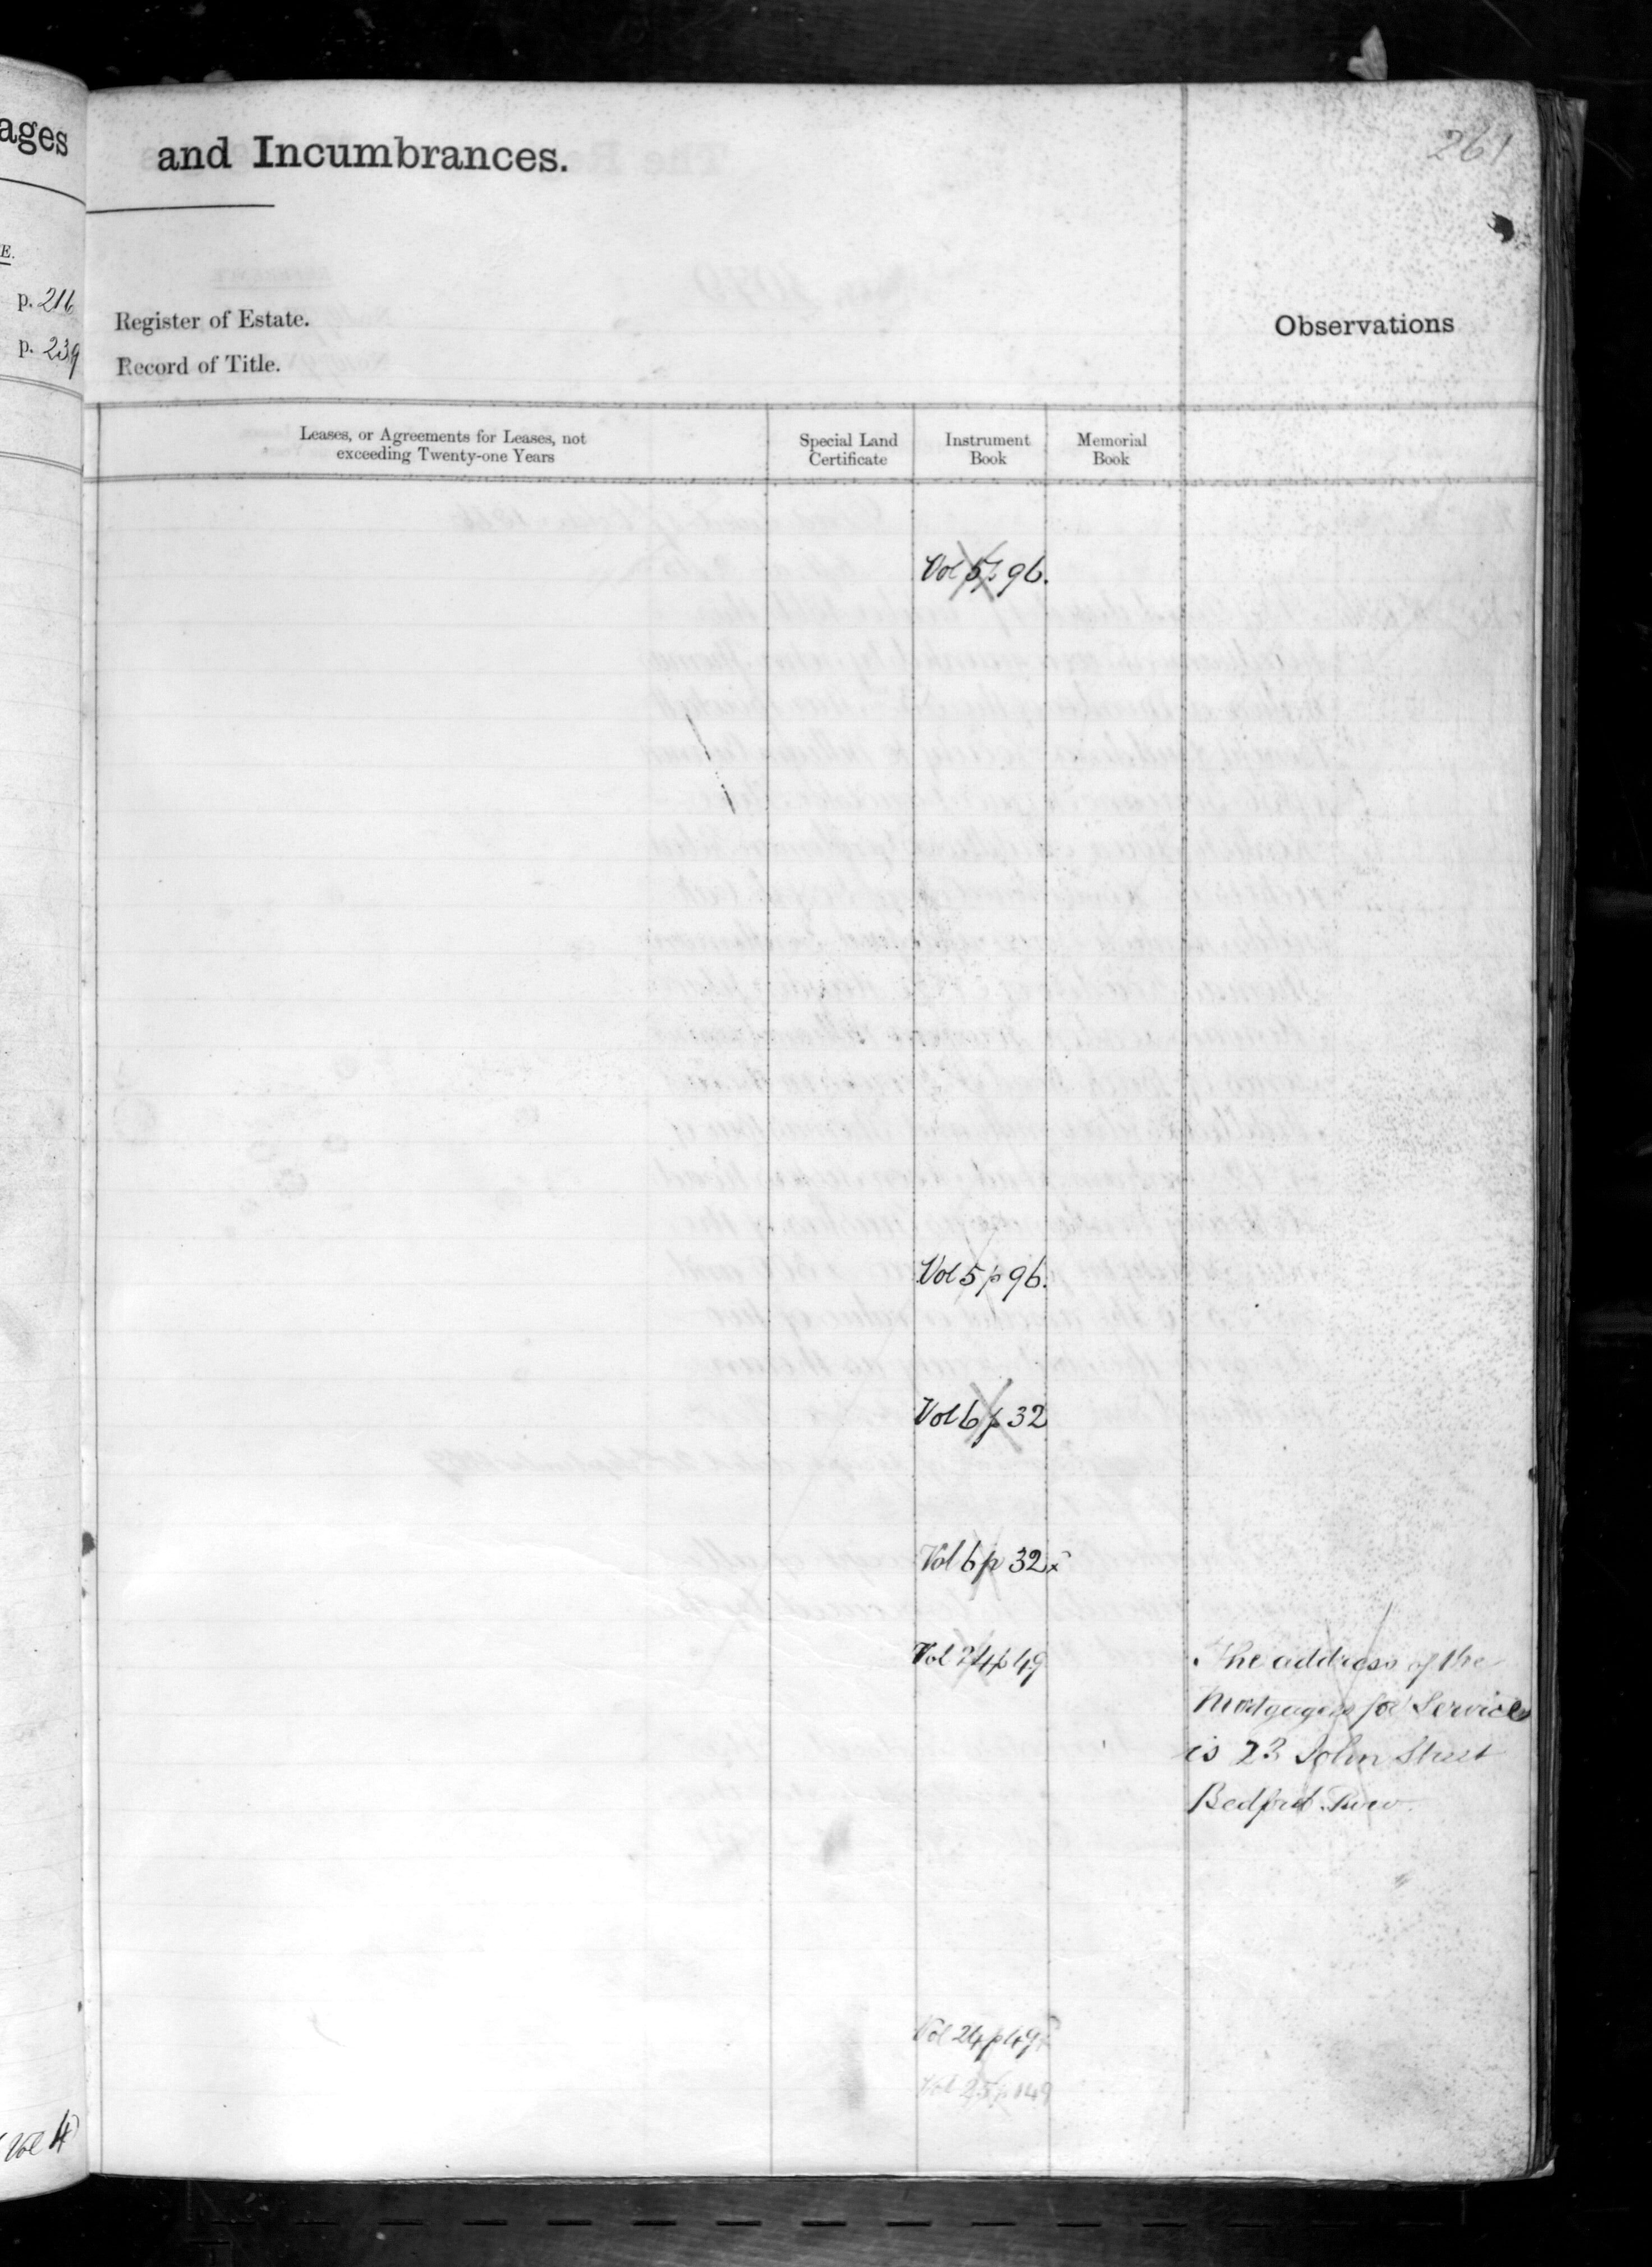 ages
and Incumbrances.
261
E.
p. 216
p. 239
Register of Estate.
Record of Title.
Observations
Leases, or Agreements for Leases, not
exceeding Twenty-one Years
Special Land
Certificate
Instrument
Book
Memorial
Book
Vol 5 p 96.
Vol 5 p 96.
Vol 6 p 32
Vol 6 p 32 x
Vol 24 p 49
The address of the
Mortgagees for Service
is 23 John Street
Bedford Row.
Vol 24 p 49
Vol 25 p 149
Vol 4